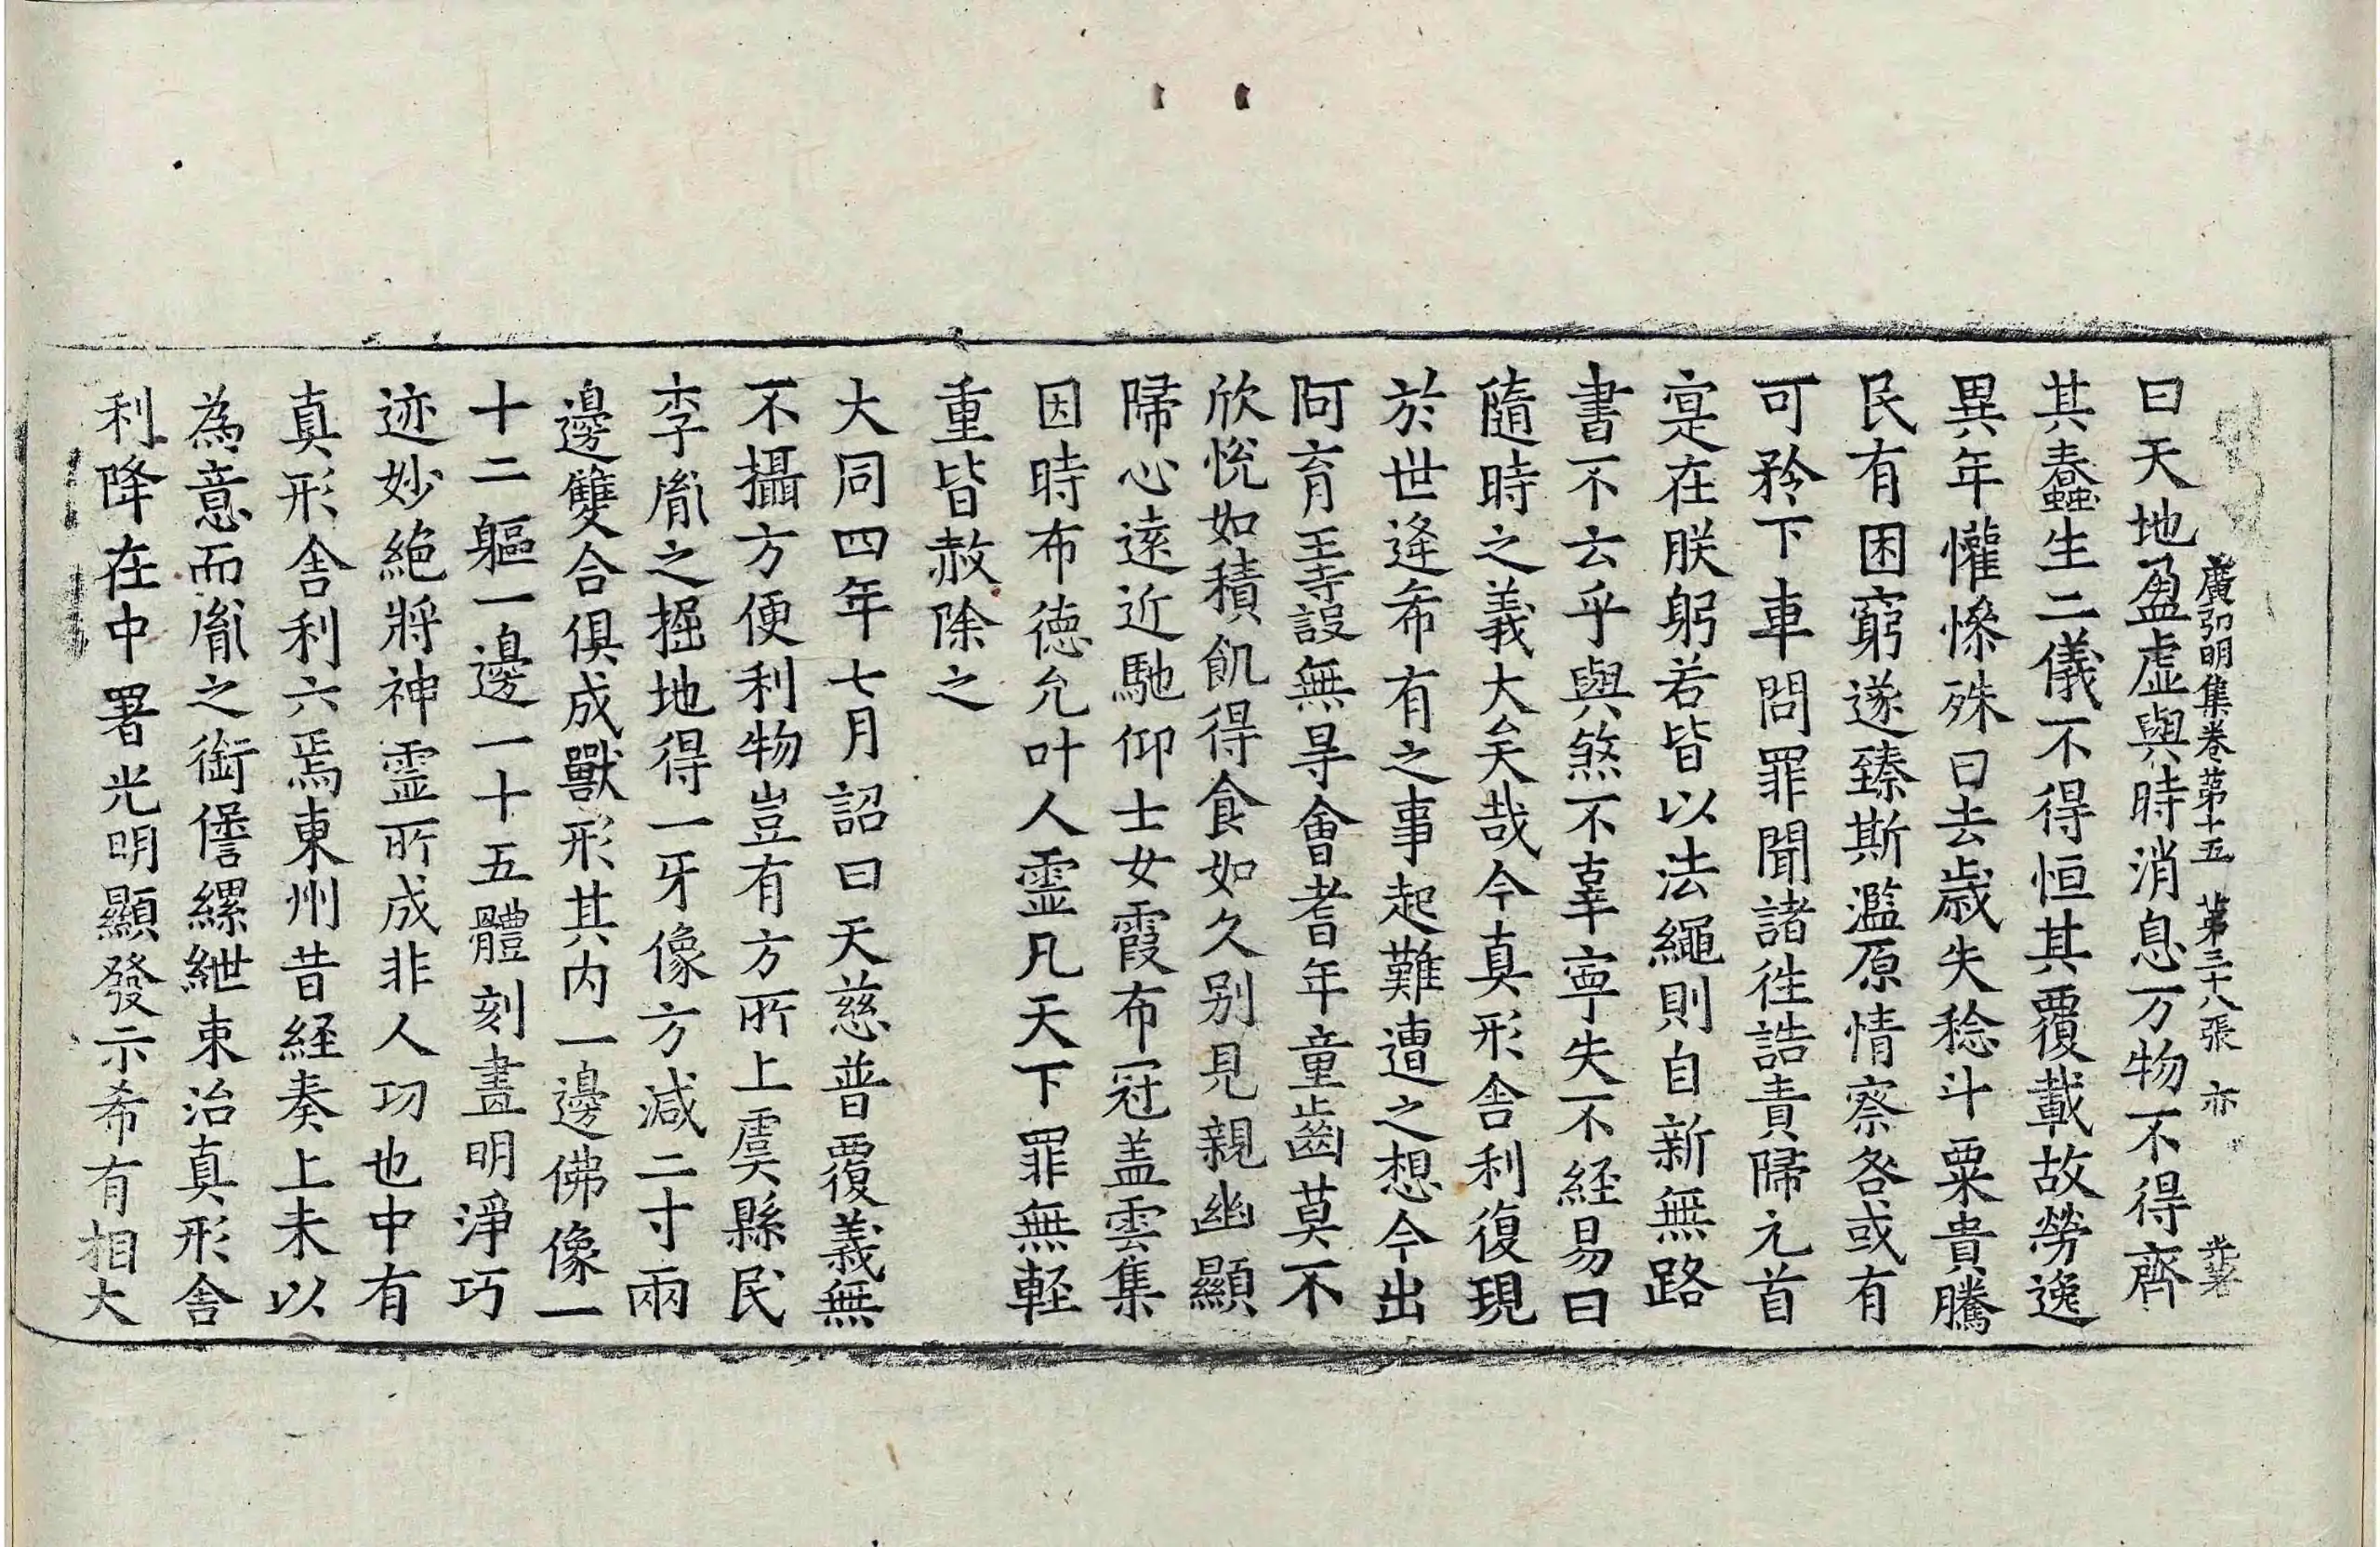 廣弘明集卷苐十五 苐三十八張 亦
曰天地盈虚與時消息万物不得齊
其蠢生二儀不得恒其覆載故勞逸
異年懽慘殊曰去歳失稔斗粟貴騰
民有困窮遂臻斯濫原情察咎或有
可矜下車問罪聞諸往誥責歸元首
寔在朕躬若皆以法繩則自新無路
書不云乎與煞不辜寧失不経易曰
隨時之義大矣哉今真形舎利復現
於世逢希有之事起難遭之想今出
阿育王寺設無㝵會耆年童齒莫不
欣恱如積飢得食如久别見親幽顯
歸心遠近馳仰士女霞布冠盖雲集
因時布徳允叶人霊凡天下罪無軽
重皆赦除之
大同四年七月詔曰天慈普覆義無
不攝方便利物豈有方所上虞縣民
李胤之掘地得一牙像方減二寸兩
邊雙合俱成獸形其内一邊佛像一
十二軀一邊一十五體刻畫明淨巧
迹妙絶將神霊所成非人功也中有
真形舎利六焉東州昔経奏上未以
為意而胤之銜僁縲紲東治真形舎
利降在中署光明顯發示希有相大